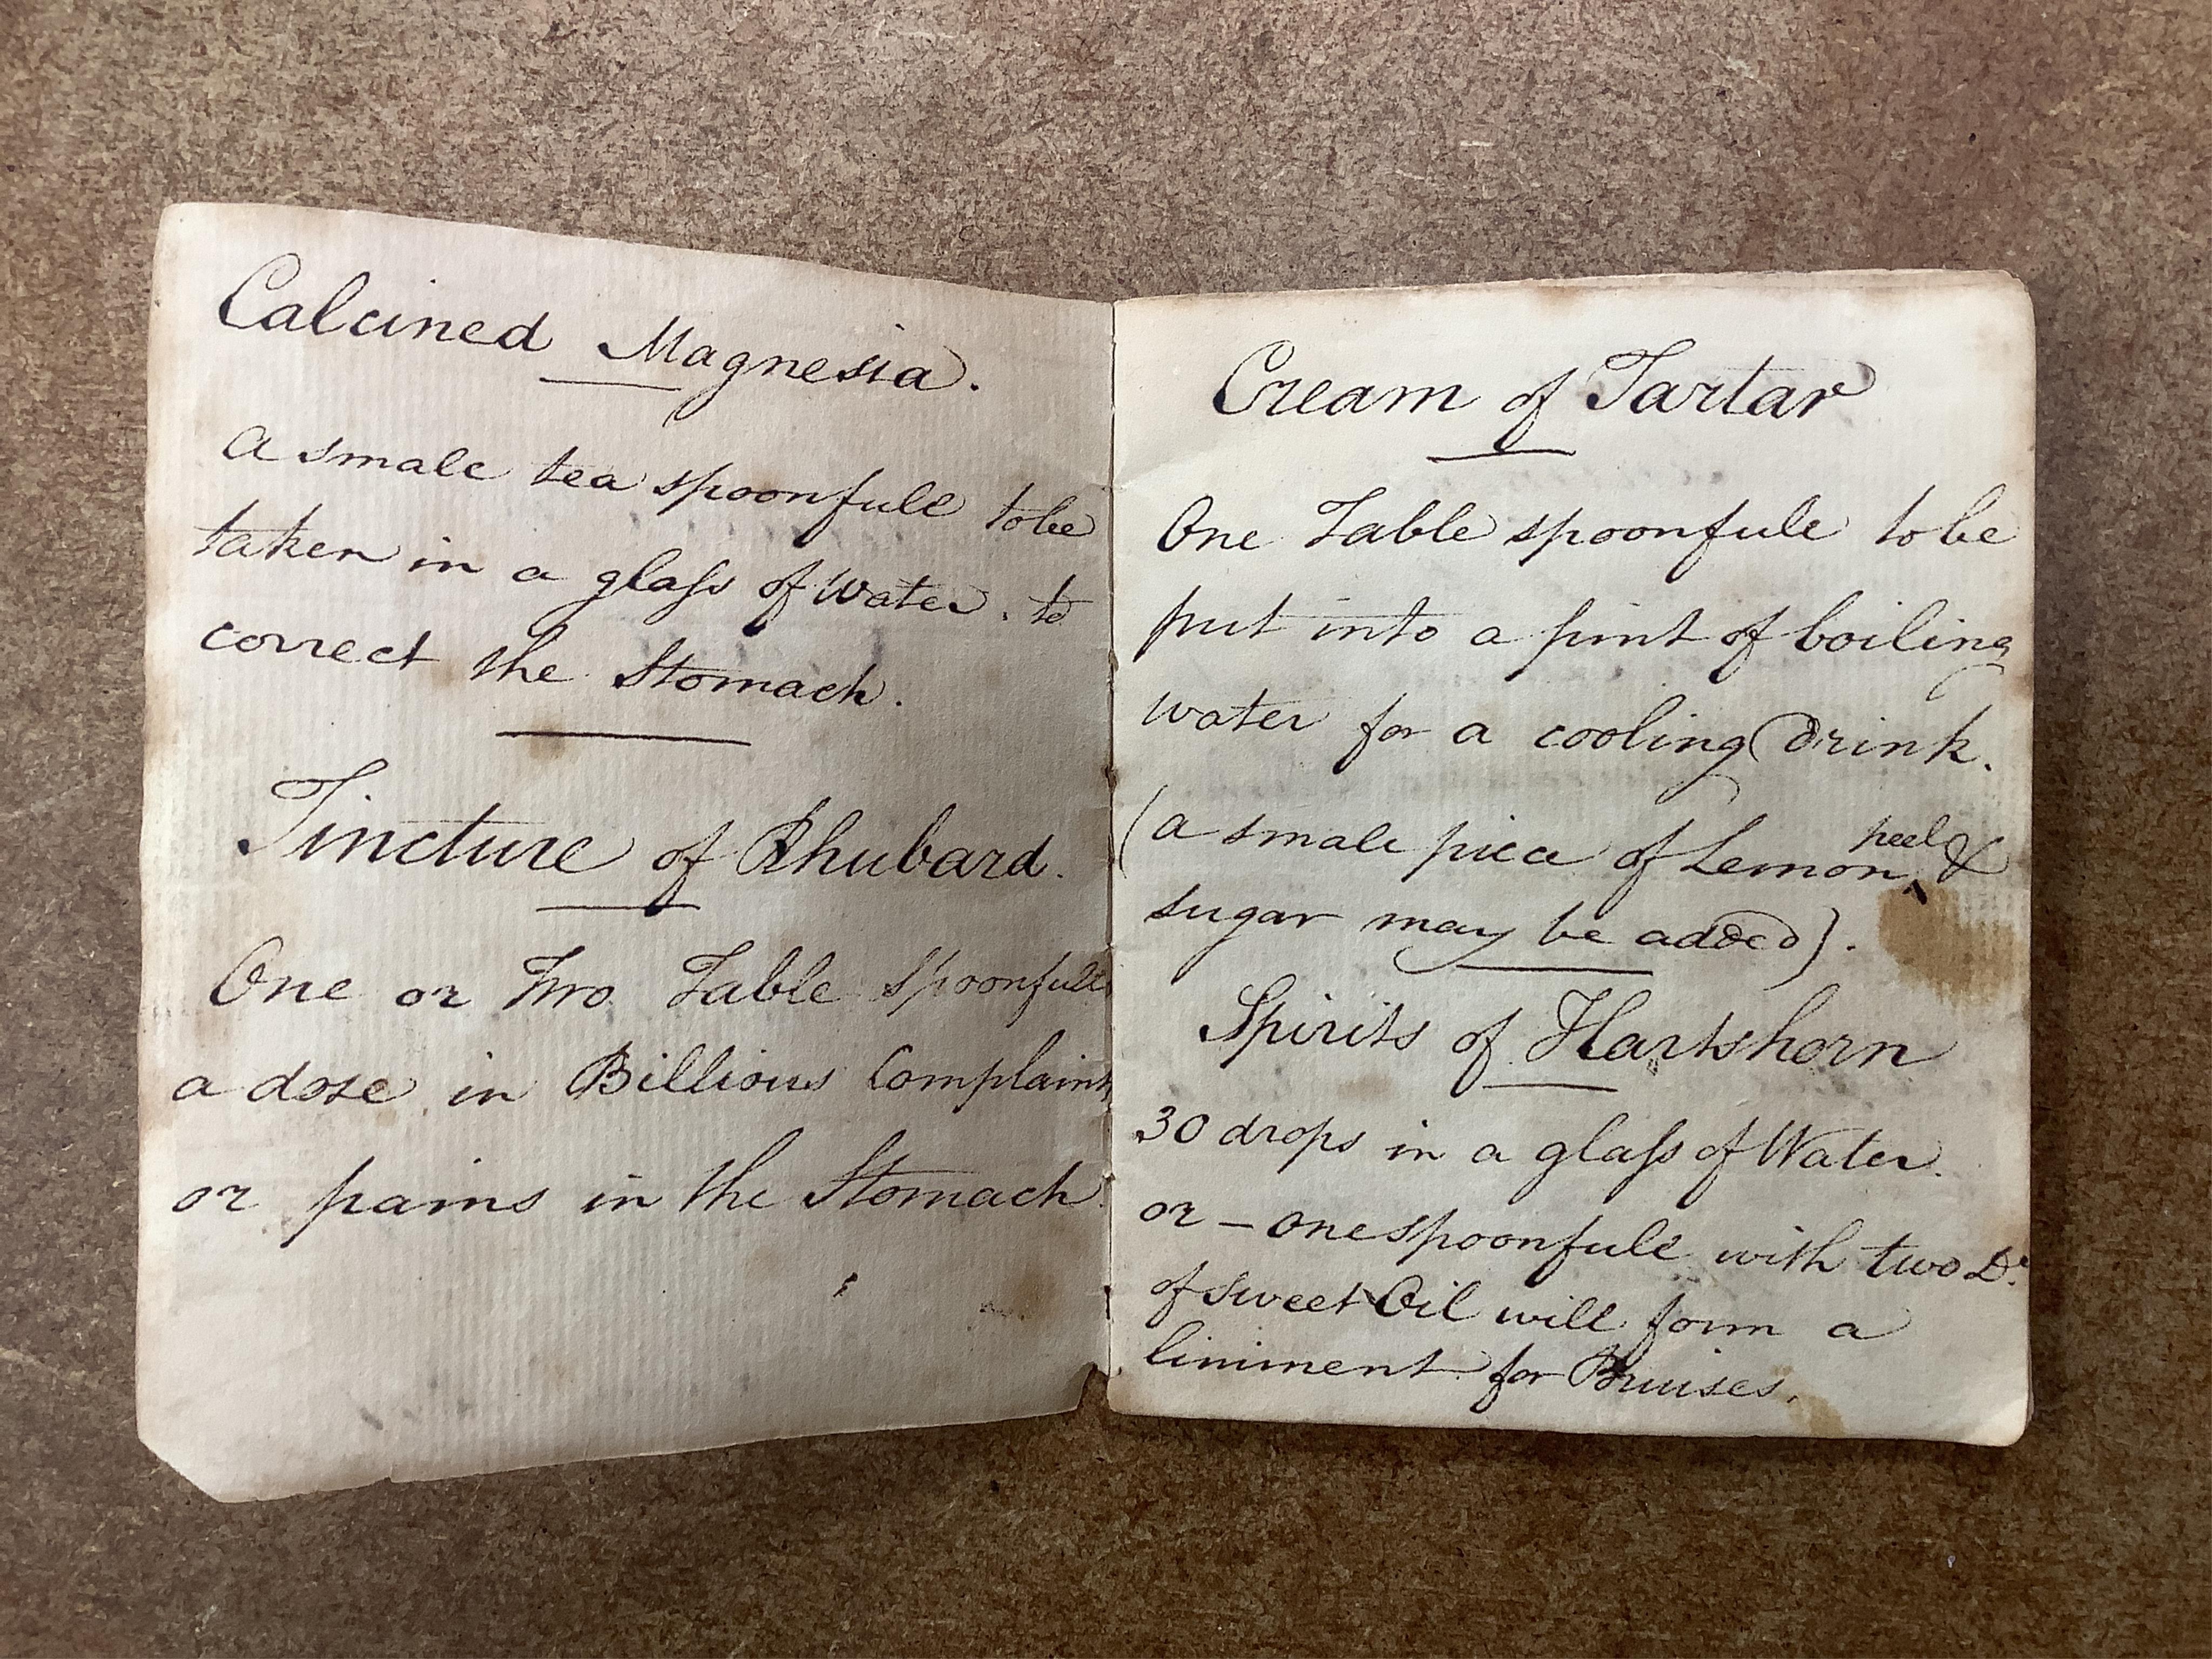 Calcined Magnesia.
A small tea spoonfull to be
taken in a glass of Water. to
correct the Stomach.
Tincture of Rhubard.
One or Two Table spoonfulls
a dose in Billious Complaints
or pains in the Stomach.
Cream of Tartar
One Table spoonfull to be
put into a pint of boiling
water for a cooling Drink.
(a small piece of Lemon peel &
sugar may be added).
Spirits of Hartshorn
30 drops in a glass of Water.
or - one spoonfull with two Do.
of sweet Oil will form a
liniment for Bruises.